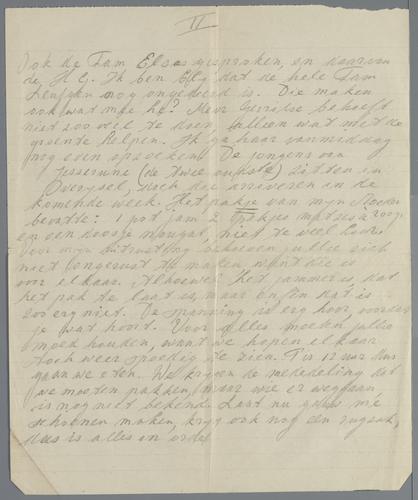 II
Ook de Fam Elsas gesproken, en daarvan
de H G. Ik ben blij dat de hele Fam
nog ongedeerd is. Die maken
ook wat mee hè? Mevr Gerritse behoeft
niet zoo veel te doen, alleen wat met de
groente helpen. Ik ga haar vanmiddag
nog even opzoeken. De jongens van
Jesserune (de twee oudste) zitten in
Overijsel, doch die arriveeren in de
komende week. Het pakje van mijn Moeder
bevatte: 1 pot jam 2 pakjes
en een doosje nougat, niet te veel hoor.
Over mijn uitrusting behoeven jullie zich
niet ongerust te maken, want die is
voor elkaar. Alhoewel het jammer is dat
het pak te laat is, maar enfin dat is
zoo erg niet. De spanning is erg hoor, vooral
je wat hoort. Voor alles moeten jullie
moed houden, want we hopen elkaar
toch weer spoedig te zien. 't is 12 uur dus
gaan we eten. We kregen de mededeling dat
we moeten pakken, maar wie er weg gaan,
is nog niet bekend. Laat nu mijn
schoenen maken, krijg ook nog een rugzak,
dus is alles in orde